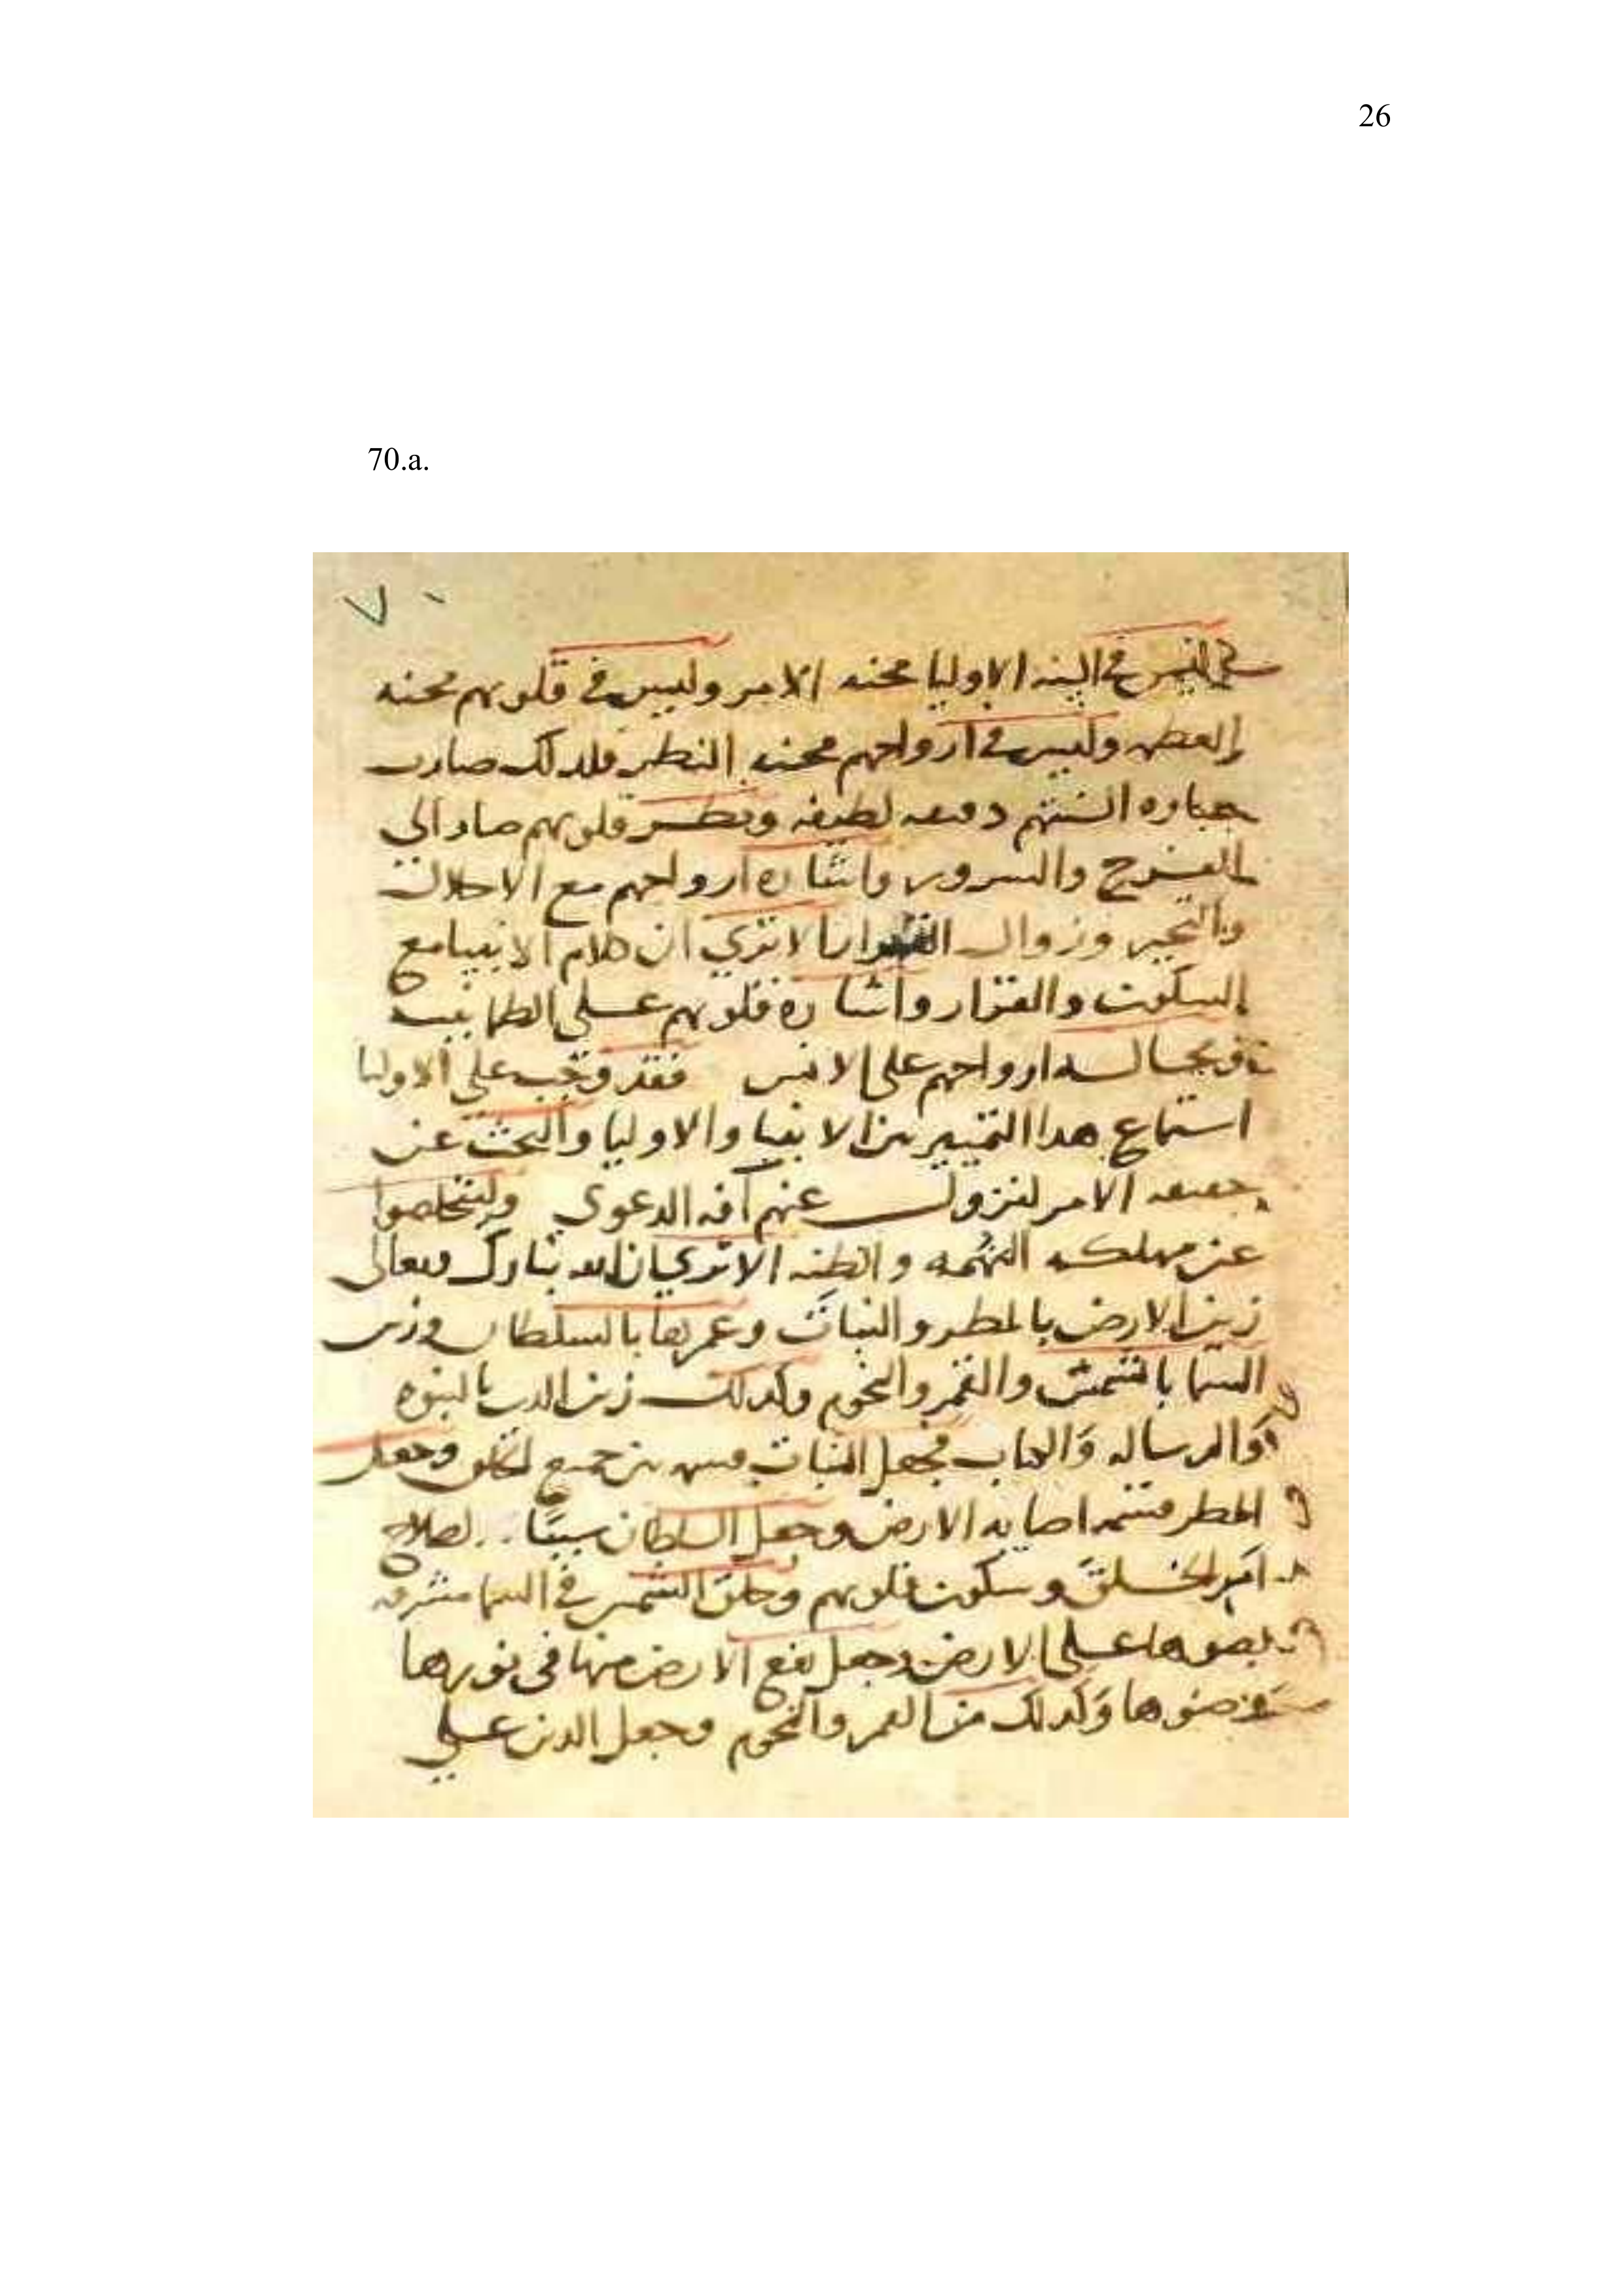 26
70.a.
٧٠
في السنه الاوليا محنه الامر وليس في قلوبهم محنه
وليس في ارواحهم محنه النطر فلدلك صارت
عباره السنتهم دقيقه لطيفه ونطر قلوبهم صار الي
الفرح والسرور واشاره ارواحهم مع الاجلال
والتحير وزوال الا تري ان كلام الانبيا مع
السكون والقرار واشاره قلوبهم علي الطمانينه
ومجالسه ارواحهم علي الانس فقد وجب علي الاوليا
استماع هدا التمييز بين الانبيا والاوليا والبحث عن
حقيقه الامر لتزول عنهم آفه الدعوي وليتخلصوا
عن مهلكه التهمه والظنه الا تري ان الله تبارك وتعالى
زين الارض بالمطر والنبات وعمرها بالسلطان وزين
السما بالشمس والقمر والنجوم وكدلك زين الدين بالنبوه
والرساله والكتاب فجعل النبات بين جميع الخلق وجعل
المطر اصابه الارض وجعل السلطان سببا لصلاح
امر الخلق وسكون قلوبهم وخلق الشمس في السما مشرقه
بضوها علي الارض وجعل نفع الارض منها في نورها
وضوها وكدلك من القمر والنجوم وجعل الدين علي